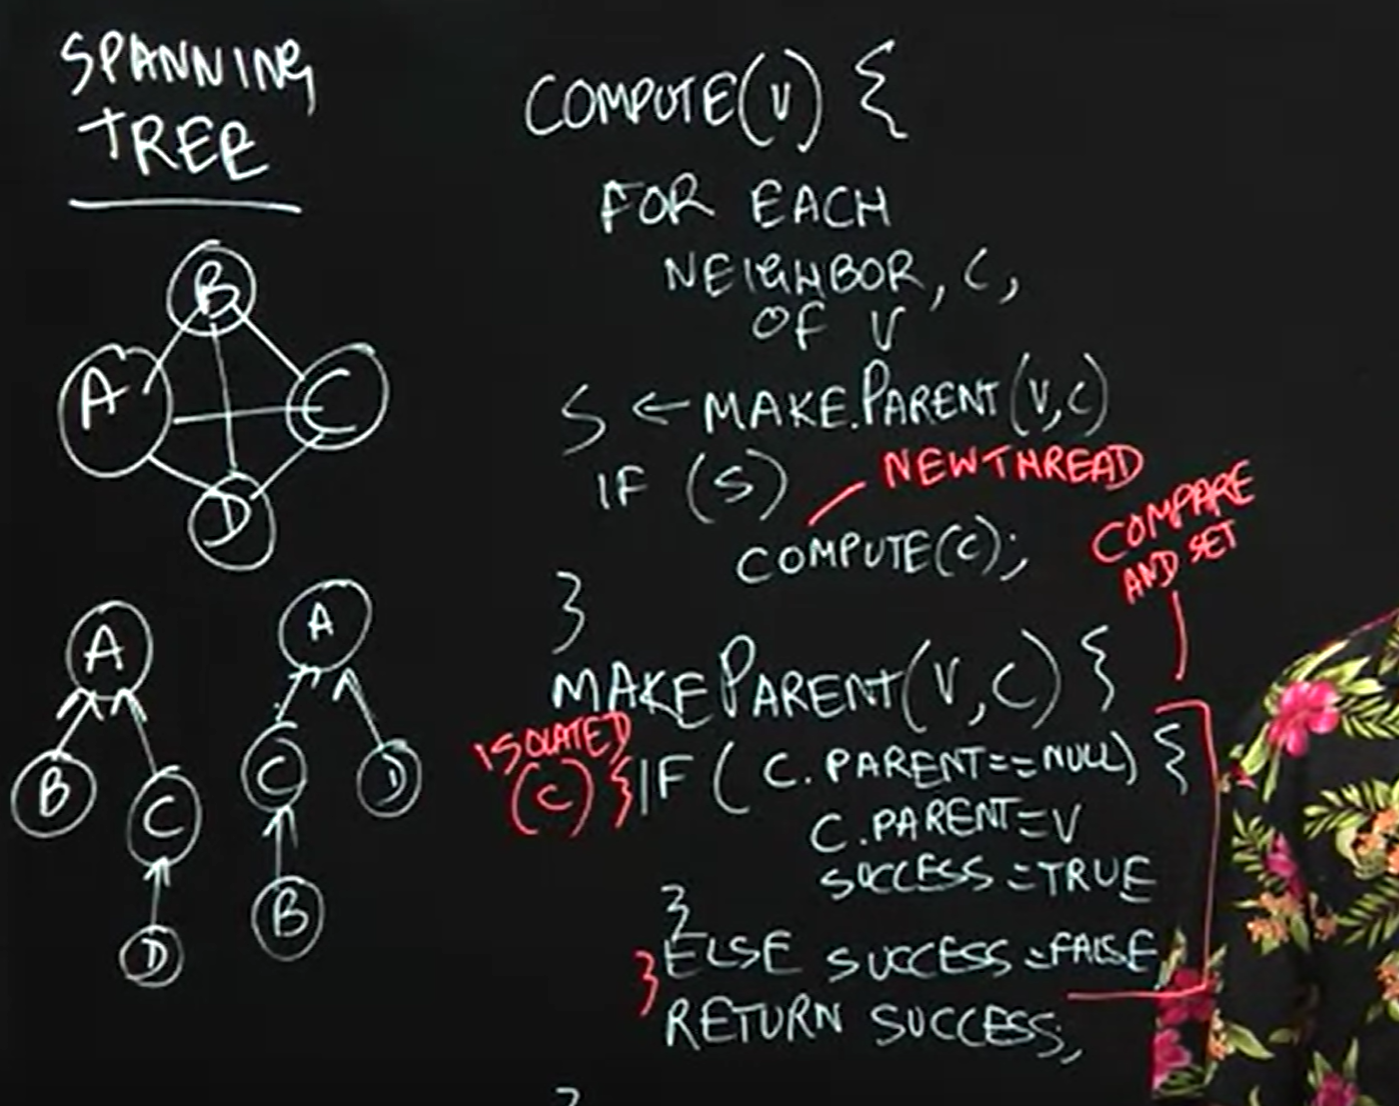 SPANNING
TREE
B
A
C
D
A
B
C
D
A
C
D
B
COMPUTE(V) {
FOR EACH
NEIGHBOR, C,
OF V
S ← MAKE.PARENT(V,C)
IF (S)
NEW THREAD
COMPUTE(C);
}
COMPARE
AND SET
MAKE PARENT(V,C) {
ISOLATED
(C) { IF ( C.PARENT==NULL) {
C.PARENT=V
SUCCESS=TRUE
}
} ELSE SUCCESS=FALSE
RETURN SUCCESS;
}